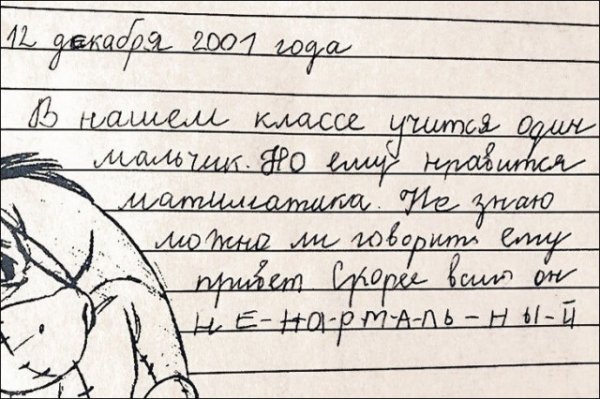 12 декабря 2001 года
В нашем классе учится один
мальчик. Но ему нравится
матиматика. Не знаю
можно ли говорить ему
привет. Скорее всиго он
Н Е-НА-Р-М-А-ЛЬ-НЫ-Й